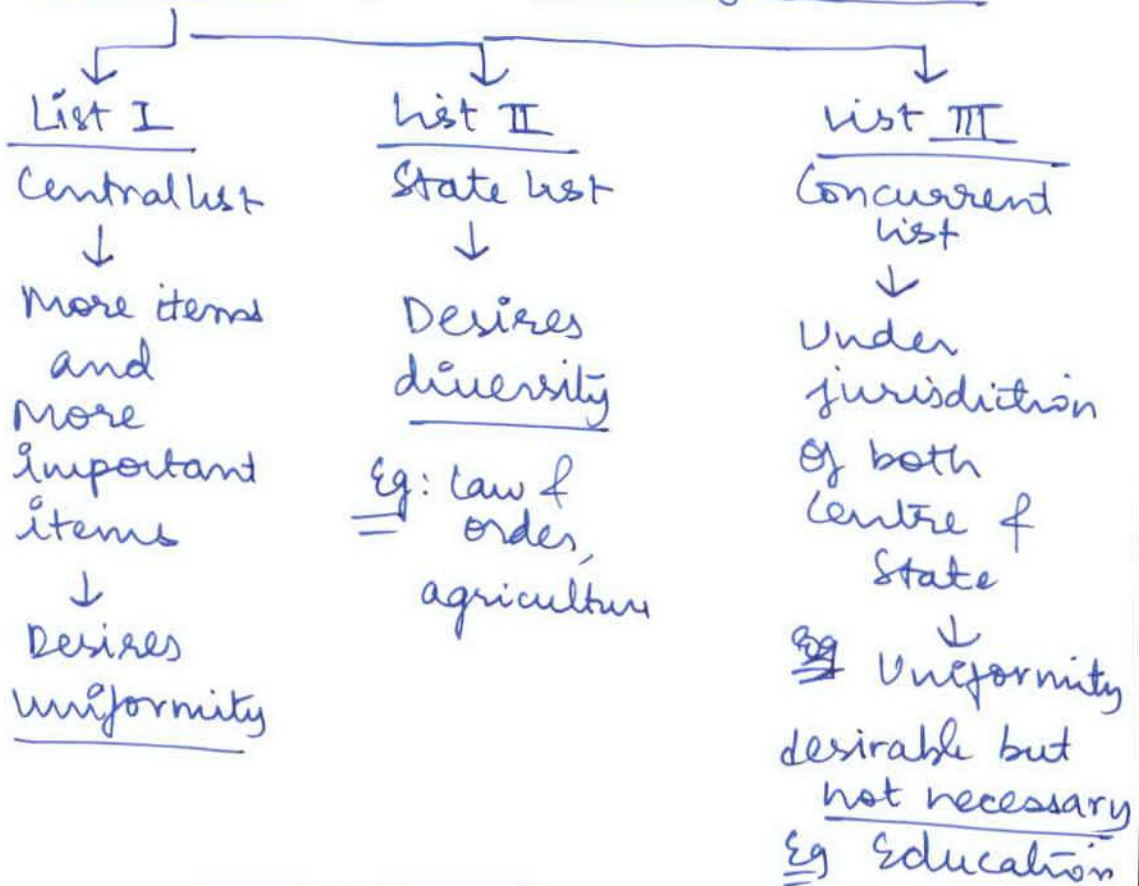 List I
Central list
↓
More items
and
More
important
items
↓
Desires
uniformity
List II
State list
↓
Desires
diversity
Eg: Law &
order,
agriculture
List III
Concurrent
list
↓
Under
jurisdiction
of both
Centre &
State
↓
Uniformity
desirable but
not necessary
Eg Education